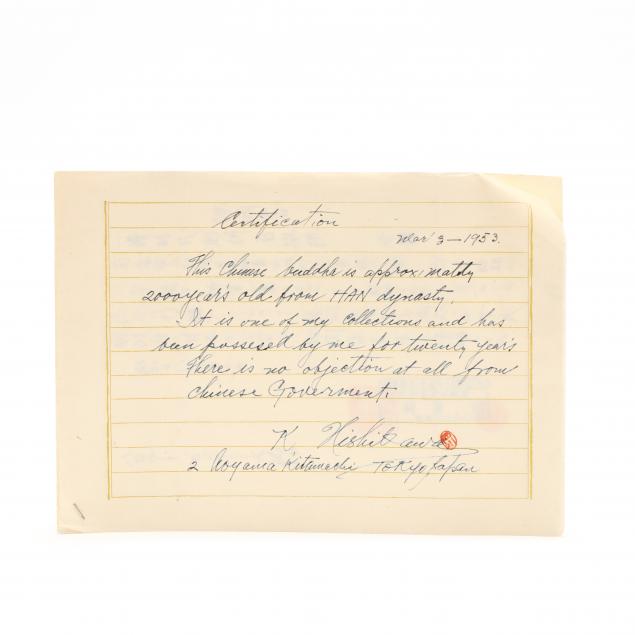 Certification
Mar 3 - 1953.
This Chinese buddha is approximatly
2000 year's old from HAN dynasty.
It is one of my collections and has
been possesed by me for twenty year's
There is no objection at all from
Chinese Goverment.
K Hishikawa
2 Aoyama Tokyo, Japan